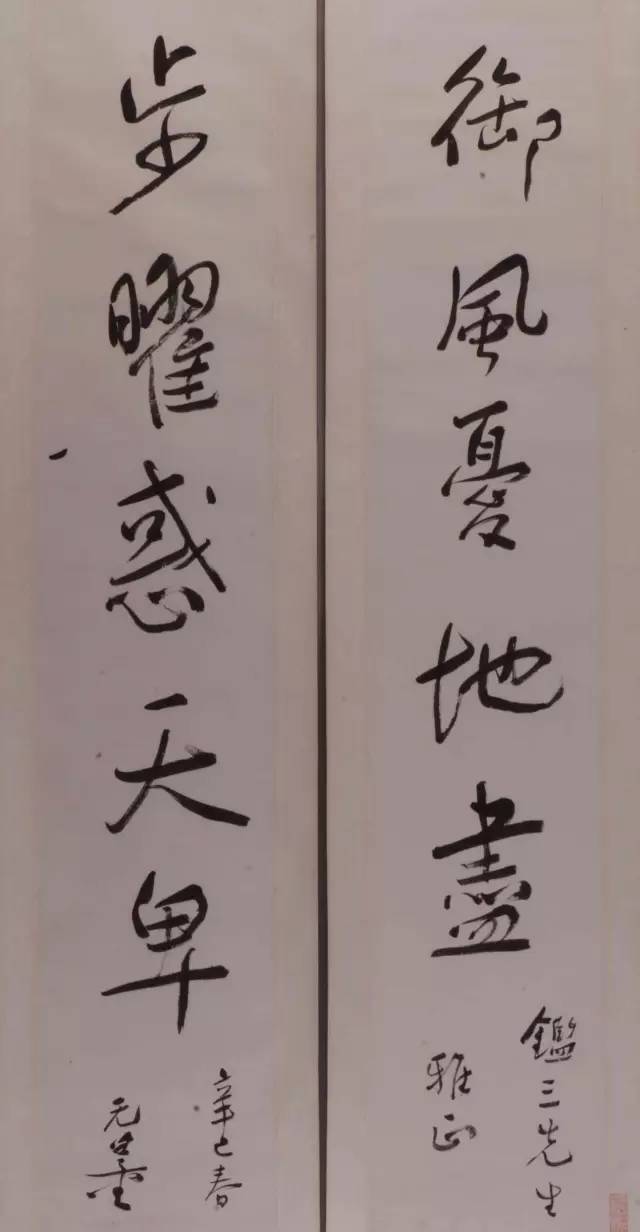 御風憂地盡
鑑三先生
雅正
步曜惑天卑
辛巳春
无量